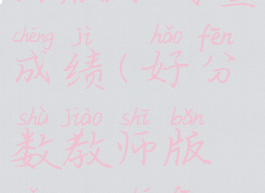 chéng jì hǎo fēn
成绩(好分
shù jiào shī bǎn
数教师版